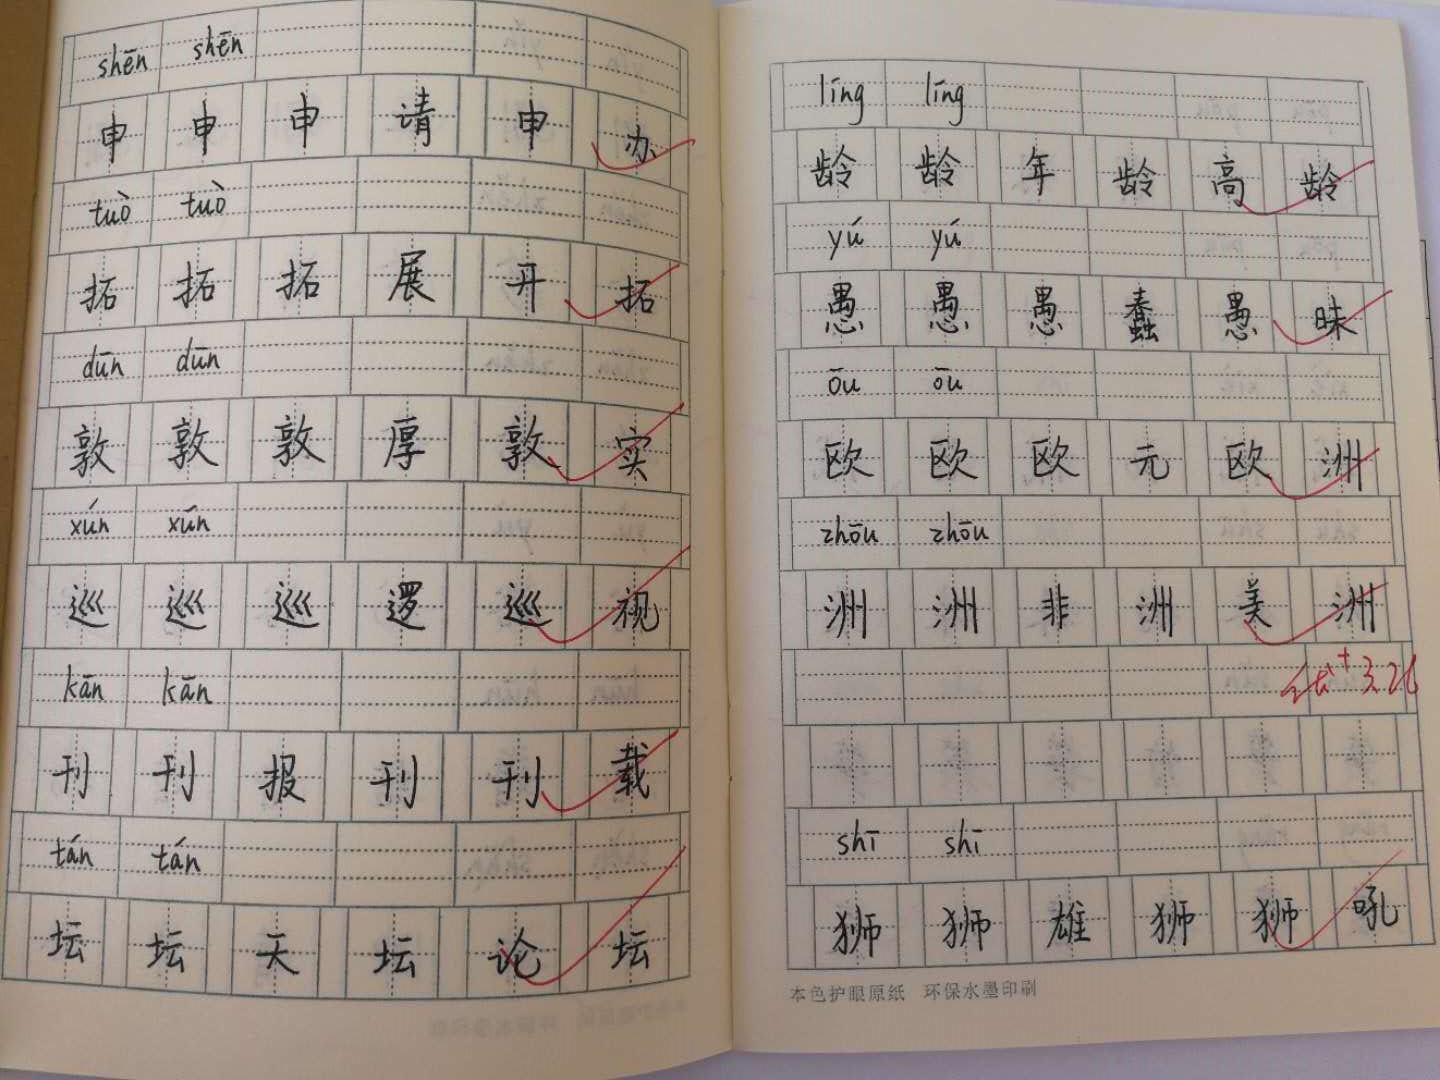 shēn shēn
申 申 申 请 申 办
tuò tuò
拓 拓 拓 展 开 拓
dūn dūn
敦 敦 敦 厚 敦 实
xún xún
巡 巡 巡 逻 巡 视
kān kān
刊 刊 报 刊 刊 载
tán tán
坛 坛 天 坛 论 坛
líng líng
龄 龄 年 龄 高 龄
yú yú
愚 愚 愚 蠢 愚 昧
ōu ōu
欧 欧 欧 元 欧 洲
zhōu zhōu
洲 洲 非 洲 美 洲
优+ 3.26
shī shī
狮 狮 雄 狮 狮 吼
本色护眼原纸 环保水墨印刷